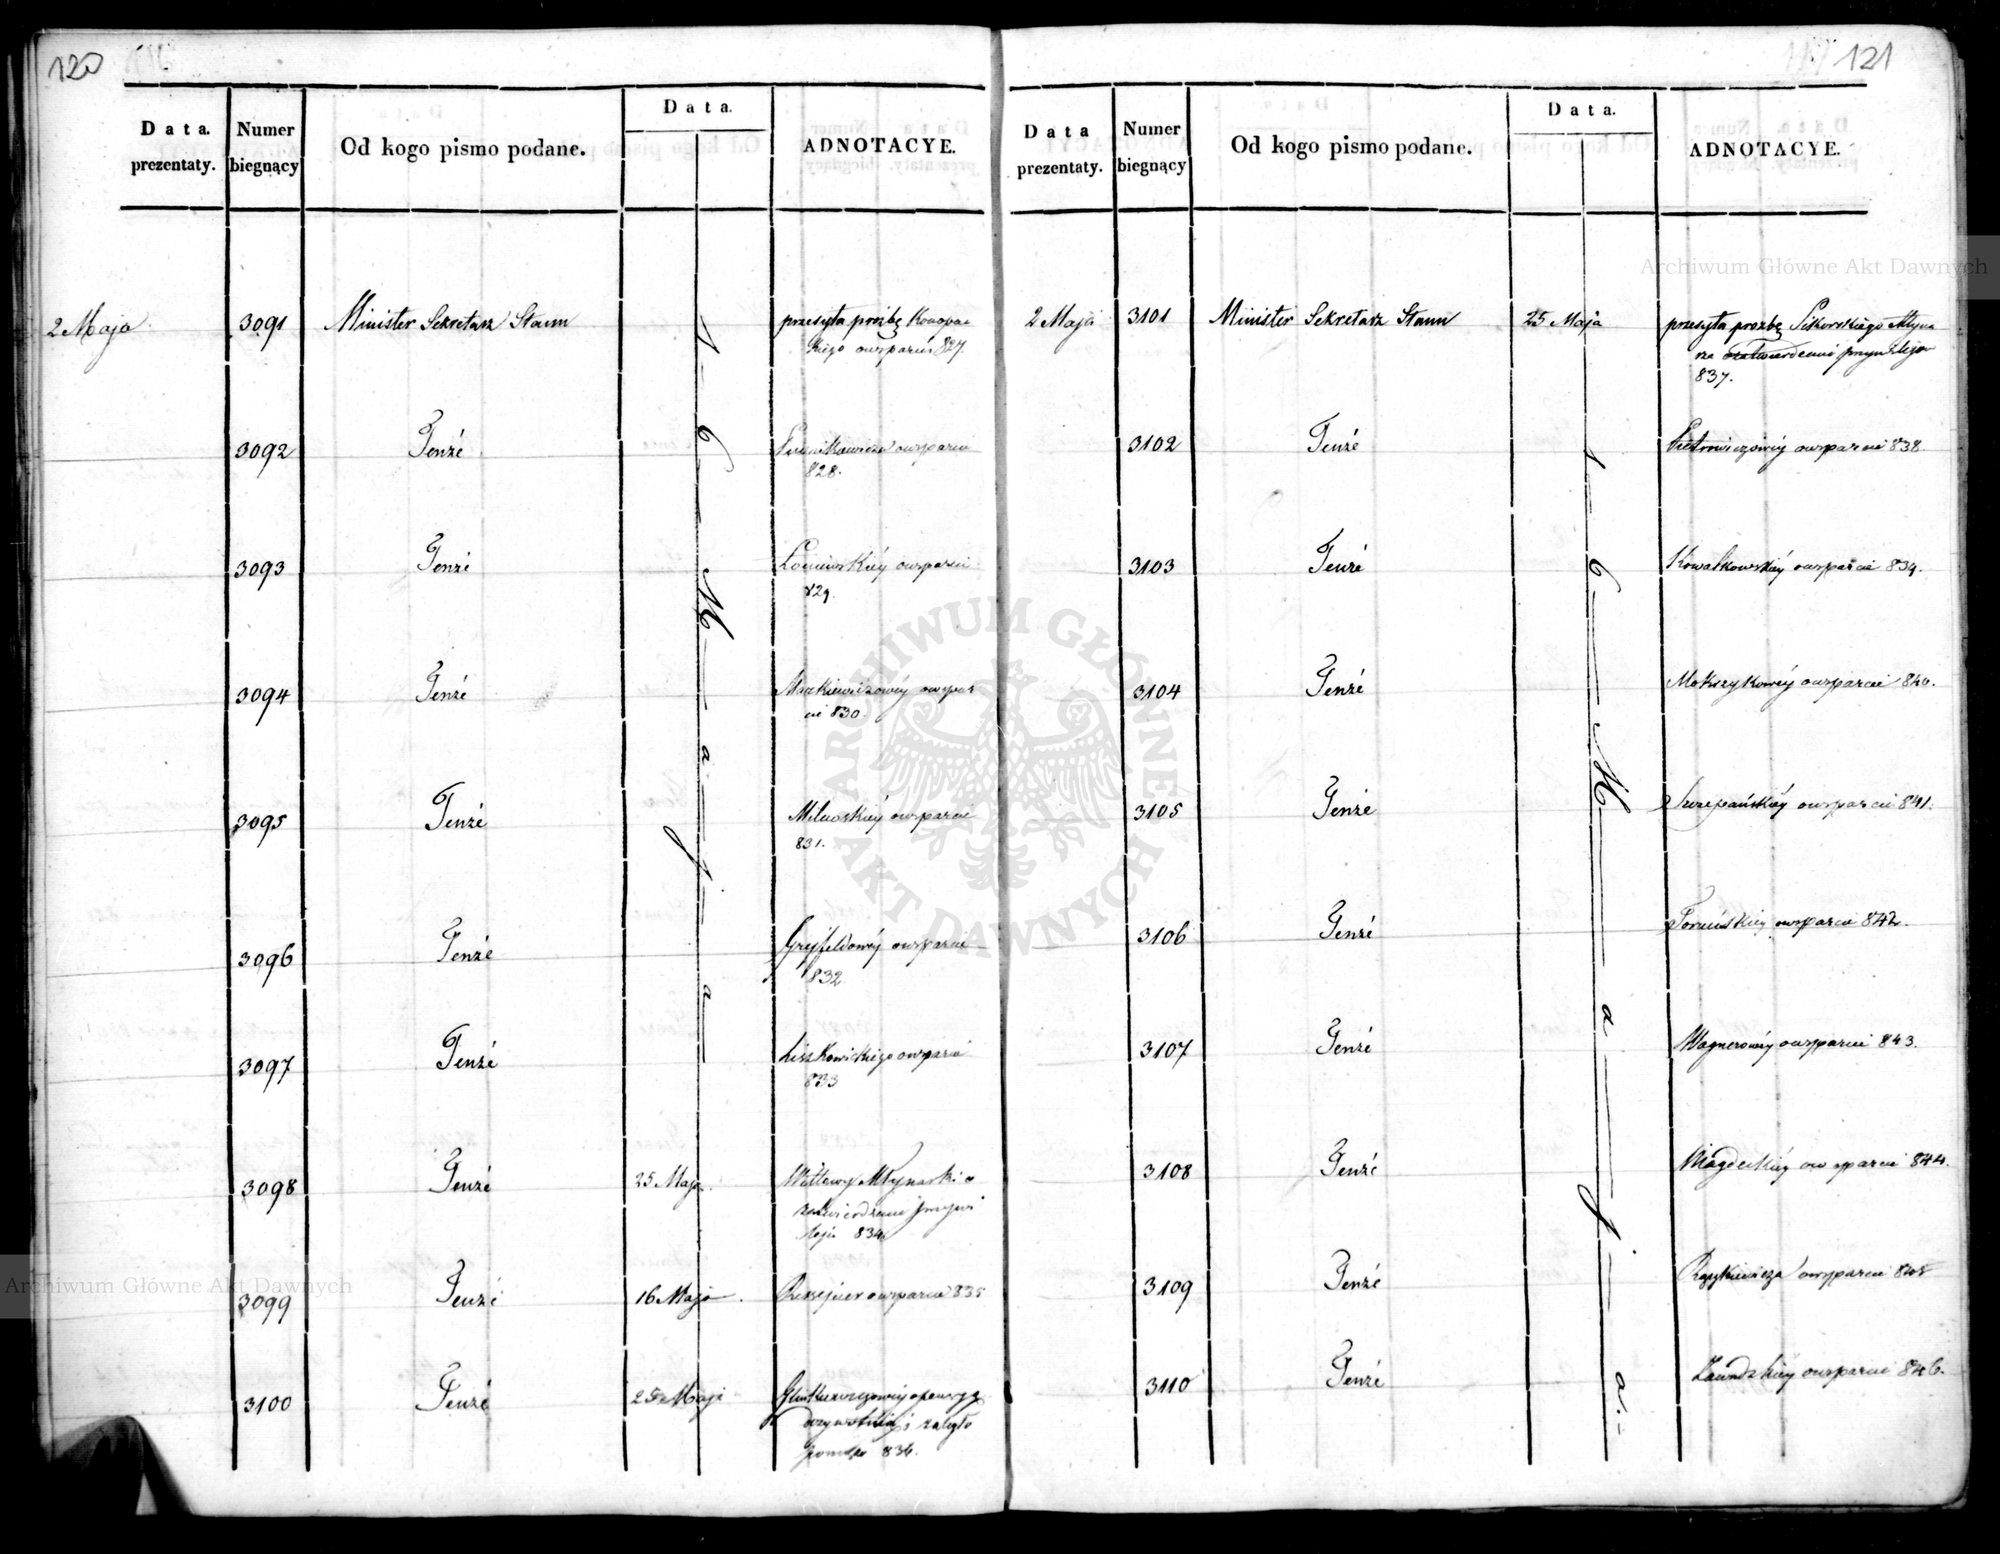 120
Data.
prezentaty.
Numer
biegnący
Od kogo pismo podane.
Data.
ADNOTACYE.
2 Maja
3091
Minister Sekretarz Stanu
16 Maja
przesyła prożbę Konopac
kiego o wsparcie 827.
3092
Tenże
o wsparcie
828.
3093
Tenże
o wsparcie
829.
3094
Tenże
o wspar
cie 830.
3095
Tenże
Milewskiéy o wsparcie
831.
3096
Tenże
Greyfeldowéy o wsparcie
832
3097
Tenże
o wsparcie
833
3098
Tenże
25 Maja
Młynarski o
zatwierdzenie przywi
leju 834.
3099
Tenże
16 Maja
o wsparcie 835
3100
Tenże
25 Maja
i zaległo
836.
121
Data
prezentaty.
Numer
biegnący
Od kogo pismo podane.
Data.
ADNOTACYE.
2 Maja
3101
Minister Sekretarz Stanu
25 Maja
przesyła prożbę Sikorskiego Młyna
rza o zatwierdzenie przywileju
837.
3102
Tenże
16 Maja.
Piotrowiczowéy o wsparcie 838.
3103
Tenże
Kowalkowskiéy o wsparcie 839.
3104
Tenże
Mokrzykowéy o wsparcie 840.
3105
Tenże
Szczepańskiéy o wsparcie 841.
3106
Tenże
Toruńskiéy o wsparcie 842.
3107
Tenże
Wagnerowéy o wsparcie 843.
3108
Tenże
o wsparcie 844.
3109
Tenże
o wsparcie 845
3110
Tenże
o wsparcie 846.
Archiwum Główne Akt Dawnych
Archiwum Główne Akt Dawnych
ARCHIWUM GŁÓWNE AKT DAWNYCH